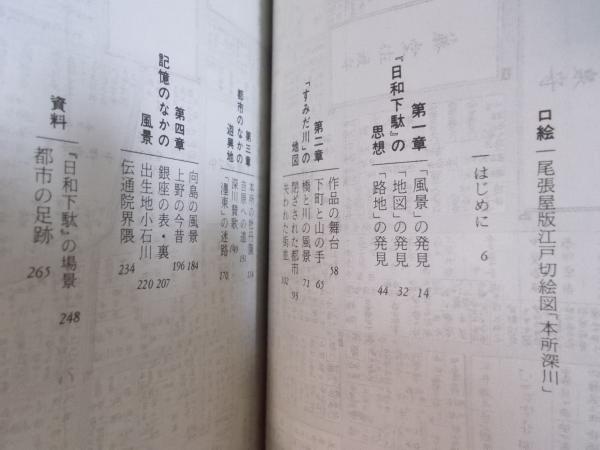 口絵 尾張屋版江戸切絵図「本所深川」
はじめに 6
第一章
『日和下駄』の思想
「風景」の発見 14
「地図」の発見 32
「路地」の発見 44
第二章
「すみだ川」の地図
作品の舞台 58
下町と山の手 65
橋と川の風景 71
閉ざされた都市 95
失われた街並 102
第三章
都市のなかの遊興地
吉原への道 151
深川賛歌
「濹東」の迷路 170
第四章
記憶のなかの風景
向島の風景 184
上野の今昔 196
銀座の表・裏 207
出生地小石川 220
伝通院界隈 234
資料
『日和下駄』の場景 248
都市の足跡 265